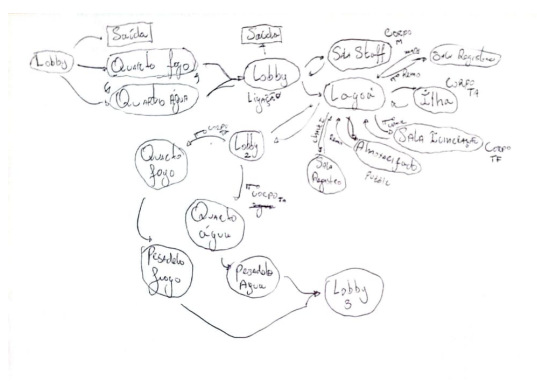 Saída
Lobby
Quarto fogo
Quarto Água
Saída
Lobby
Ligação
Sala Staff
CORPO
M
Sala Registro
Remo
Lagoá
CORPO
TA
Ilha
SALA Iluminação
CORPO
TF
Almoxarifado
Fusível
Sala
Registro
Remo
Lobby
2
CORPO
Quarto
fogo
CORPO TA
Quarto
água
Pesadelo
fogo
Pesadelo
Agua
Lobby
3